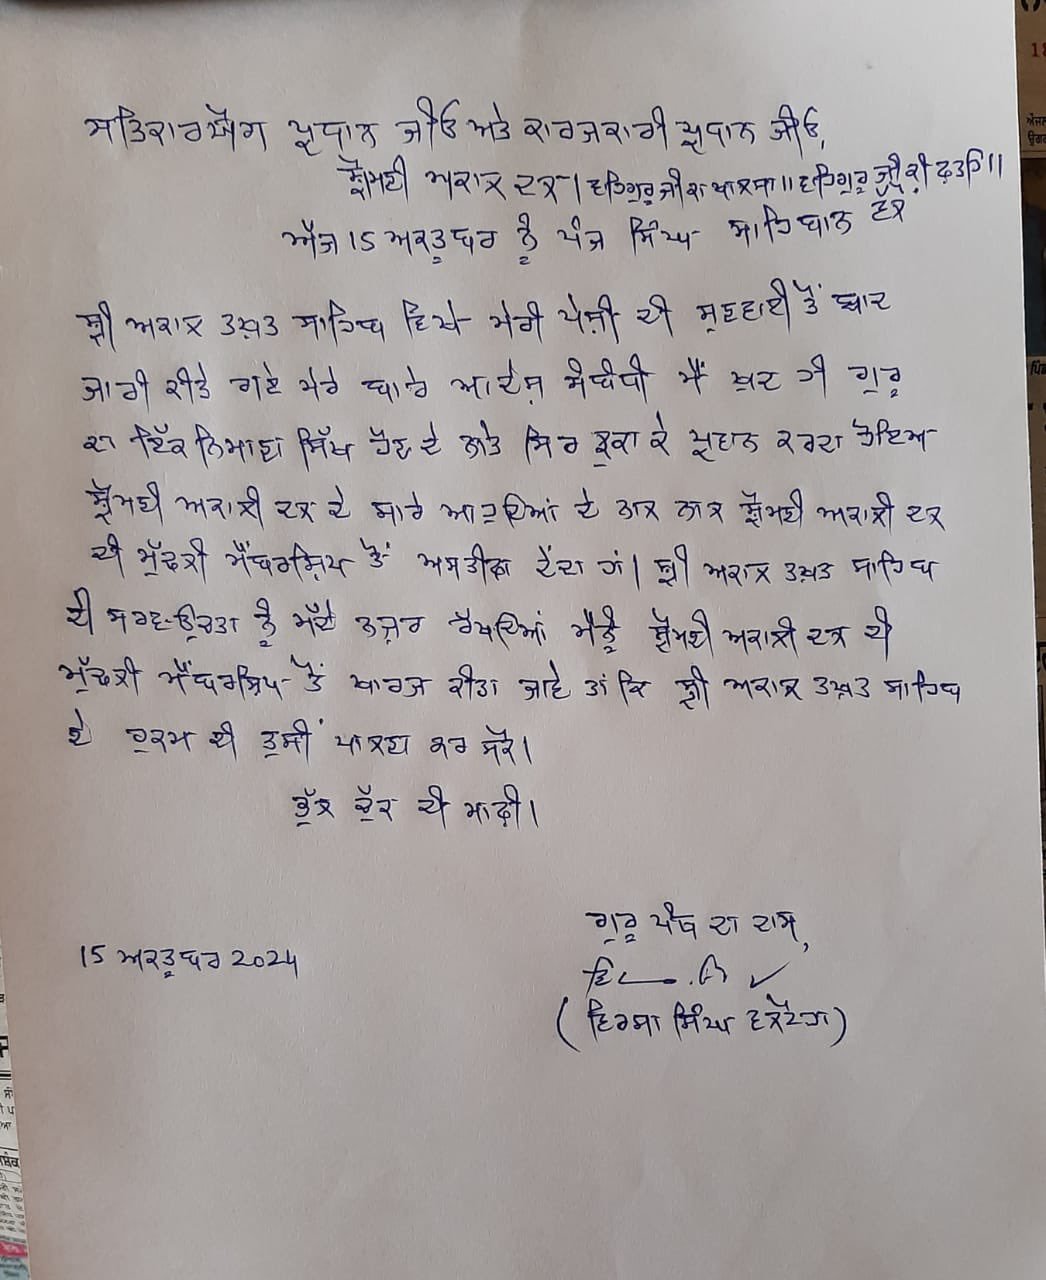 ਸਤਿਕਾਰਯੋਗ ਪ੍ਰਧਾਨ ਜੀਓ ਅਤੇ ਕਾਰਜਕਾਰੀ ਪ੍ਰਧਾਨ ਜੀਓ,
ਸ਼੍ਰੋਮਣੀ ਅਕਾਲ ਦਲ। ਵਹਿਗੁਰੂ ਜੀ ਕਾ ਖਾਲਸਾ॥ ਵਹਿਗੁਰੂ ਜੀ ਕੀ ਫ਼ਤਹਿ॥
ਅੱਜ 15 ਅਕਤੂਬਰ ਨੂੰ ਪੰਜ ਸਿੰਘ ਸਾਹਿਬਾਨ ਵੱਲੋਂ
ਸ਼੍ਰੀ ਅਕਾਲ ਤਖ਼ਤ ਸਾਹਿਬ ਵਿਖੇ ਮੇਰੀ ਪੇਸ਼ੀ ਦੀ ਸੁਣਵਾਈ ਤੋਂ ਬਾਦ
ਜਾਰੀ ਕੀਤੇ ਗਏ ਮੇਰੇ ਬਾਰੇ ਆਦੇਸ਼ ਸੰਬੰਧੀ ਮੈਂ ਖ਼ੁਦ ਹੀ ਗੁਰੂ
ਦਾ ਇੱਕ ਨਿਮਾਣਾ ਸਿੱਖ ਹੋਣ ਦੇ ਨਾਤੇ ਸਿਰ ਝੁਕਾ ਕੇ ਪ੍ਰਵਾਨ ਕਰਦਾ ਹੋਇਆ
ਸ਼੍ਰੋਮਣੀ ਅਕਾਲੀ ਦਲ ਦੇ ਸਾਰੇ ਆਹੁਦਿਆਂ ਦੇ ਨਾਲ ਨਾਲ ਸ਼੍ਰੋਮਣੀ ਅਕਾਲੀ ਦਲ
ਦੀ ਮੁੱਢਲੀ ਮੈਂਬਰਸ਼ਿਪ ਤੋਂ ਅਸਤੀਫਾ ਦੇਂਦਾ ਹਾਂ। ਸ਼੍ਰੀ ਅਕਾਲ ਤਖ਼ਤ ਸਾਹਿਬ
ਦੀ ਸਰਵ-ਉੱਚਤਾ ਨੂੰ ਮੱਦੇ ਨਜ਼ਰ ਰੱਖਦਿਆਂ ਮੈਨੂੰ ਸ਼੍ਰੋਮਣੀ ਅਕਾਲੀ ਦਲ ਦੀ
ਮੁੱਢਲੀ ਮੈਂਬਰਸ਼ਿਪ ਤੋਂ ਖਾਰਜ ਕੀਤਾ ਜਾਵੇ ਤਾਂ ਕਿ ਸ਼੍ਰੀ ਅਕਾਲ ਤਖ਼ਤ ਸਾਹਿਬ
ਦੇ ਹੁਕਮ ਦੀ ਤੁਸੀਂ ਪਾਲਣਾ ਕਰ ਸਕੋ।
ਭੁੱਲ ਚੁੱਕ ਦੀ ਮਾਫ਼ੀ।
ਗੁਰੂ ਪੰਥ ਦਾ ਦਾਸ,
15 ਅਕਤੂਬਰ 2024
(ਵਿਰਸਾ ਸਿੰਘ ਵਲਟੋਹਾ)